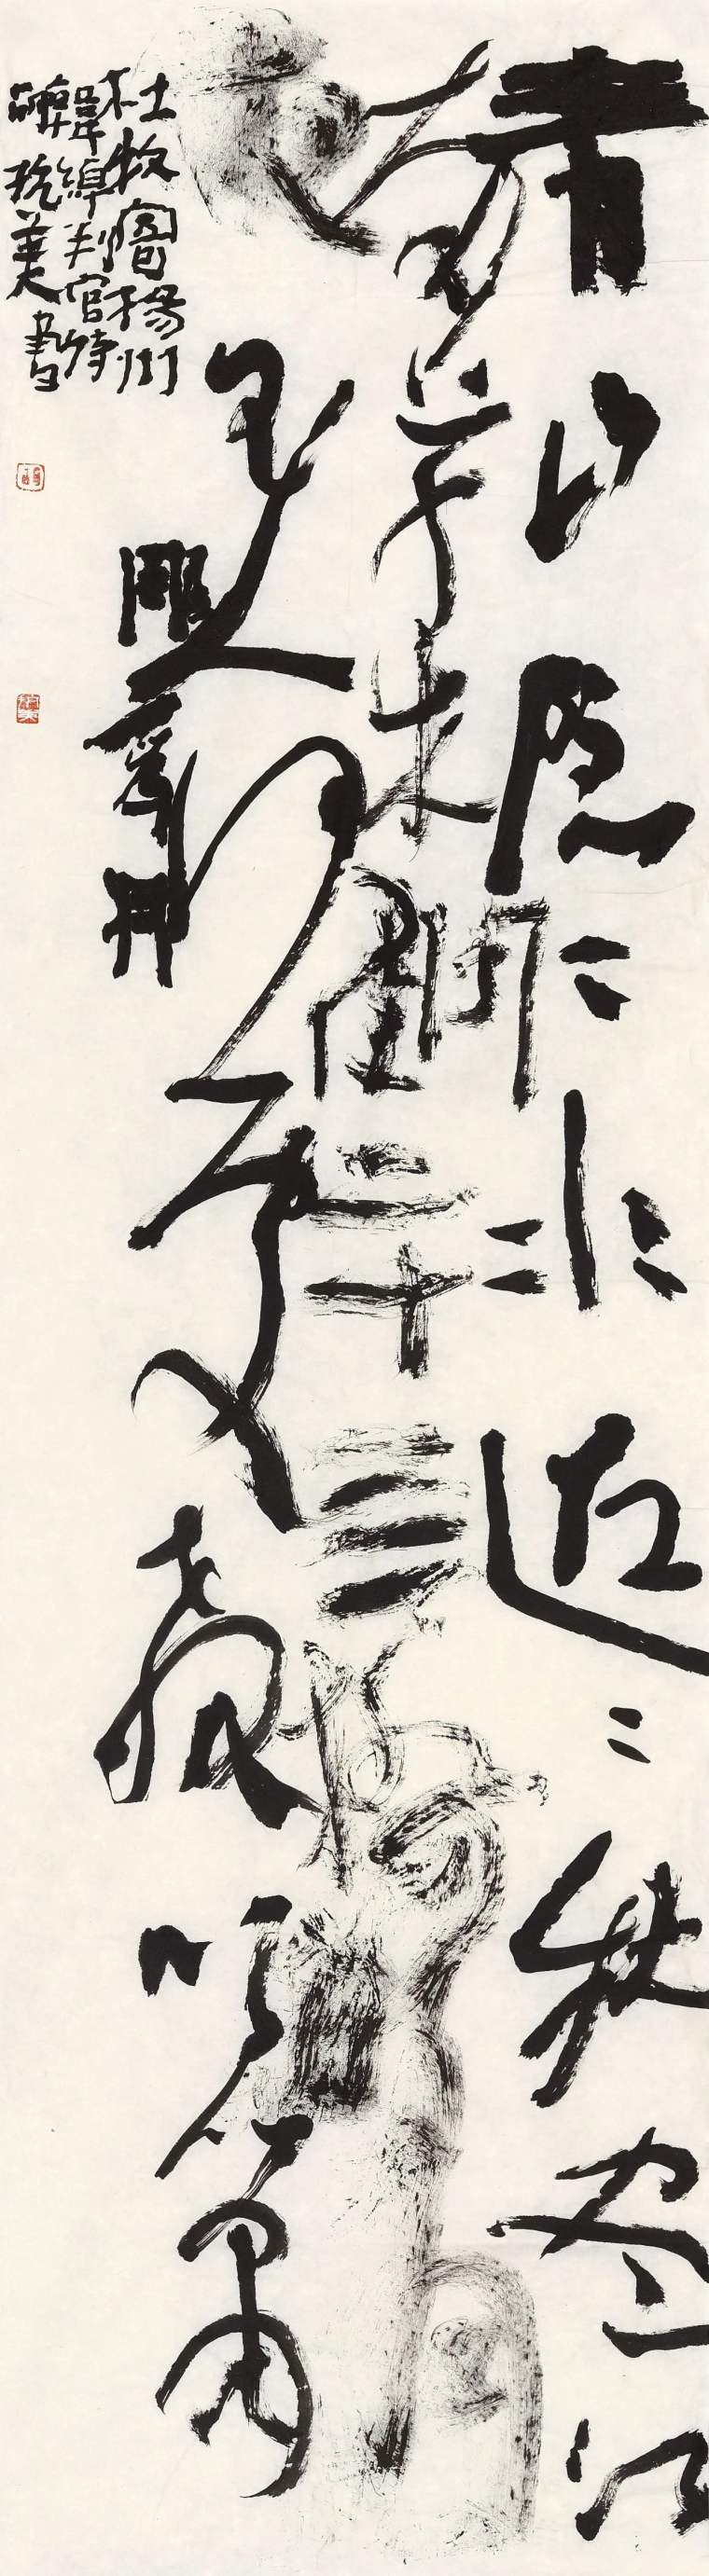 青山隱〻水〻迢〻秋盡江
南草未凋二十亖橋明月
夜玉人何處教吹簫
杜牧寄揚州
韓綽判官詩
抗美書